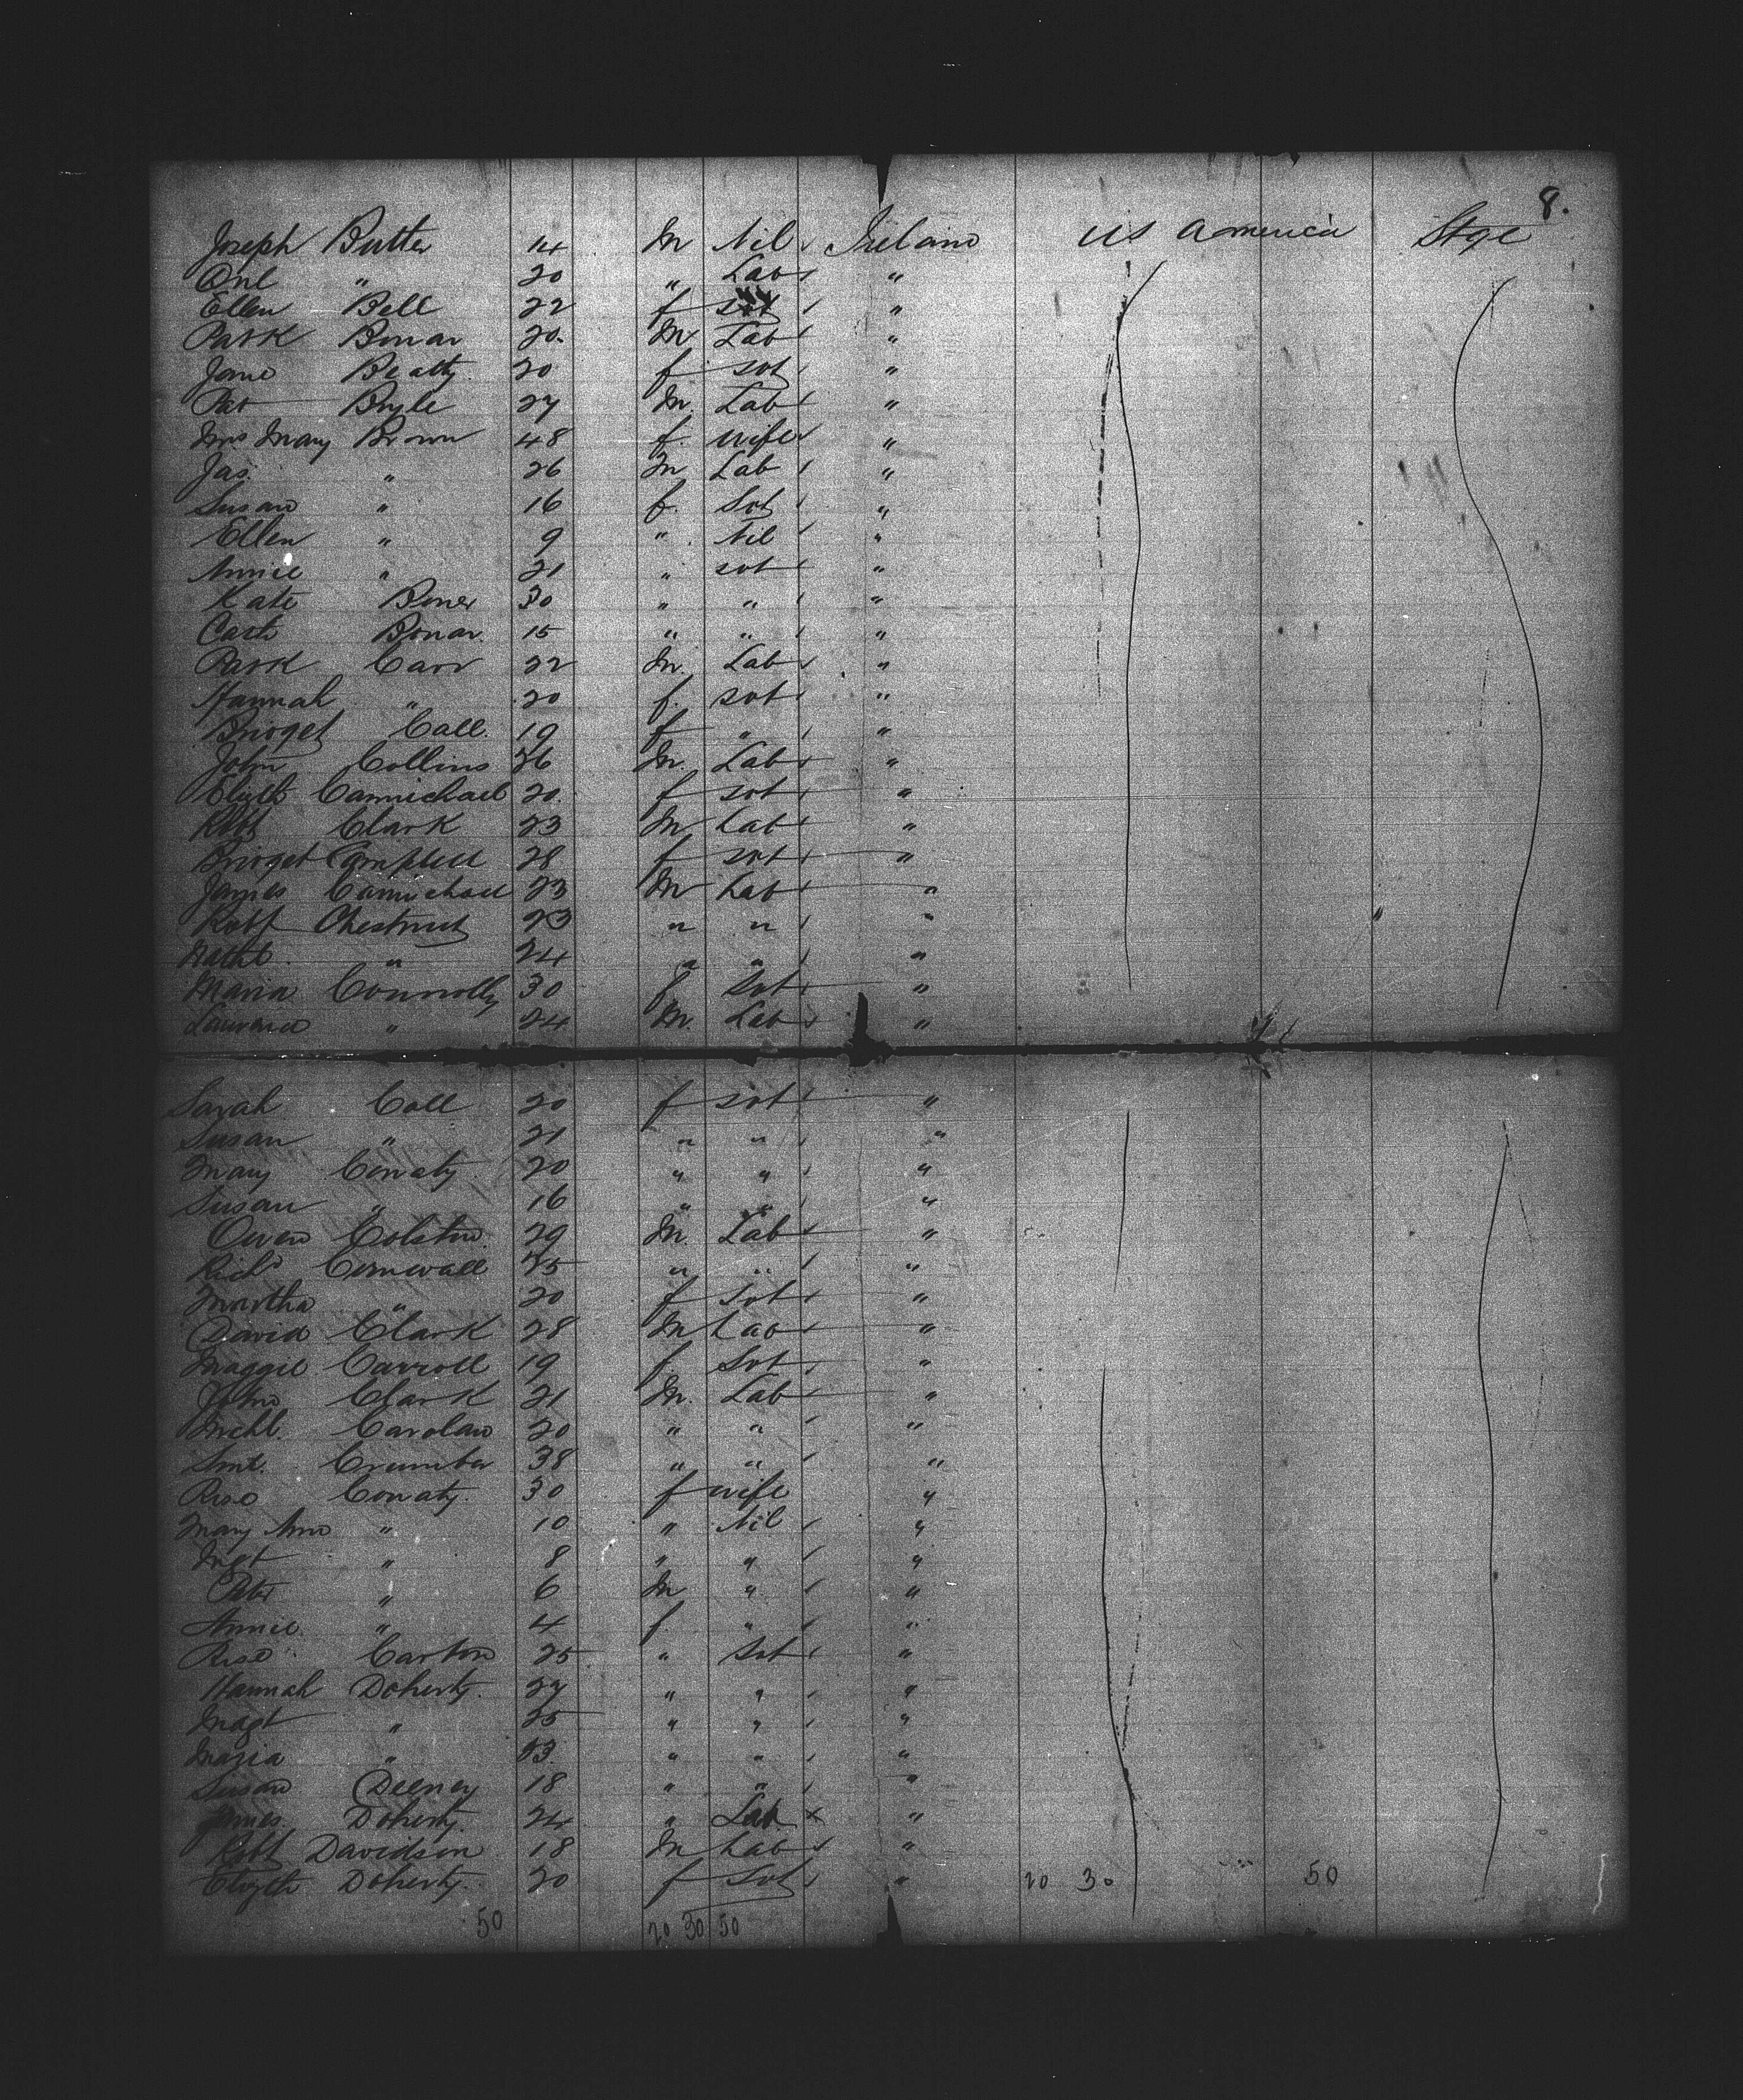 8.
Joseph Butter 14 M Nil Ireland US America Stge
" 20 " Lab "
Ellen Bell 22 f svt "
Patk Bonar 20 M Lab "
Jane Beatty 20 f svt "
Pat Boyle 27 M Lab "
Mrs Mary Brown 48 f wife "
Jas " 26 M Lab "
Susan " 16 f Svt "
Ellen " 9 " Nil "
Annie " 21 " svt "
Kate Boner 30 " " "
Cath Bonar 15 " " "
Patk Carr 22 M Lab "
Hannah " 20 f svt "
Bridget Call 19 f " "
John Collins 26 M Lab "
Elizth Carmichael 20 f svt "
Robt Clark 23 M Lab "
Bridget Campbell 28 f svt "
James Carmichael 23 M Lab "
Robt Chestnut 23 " " "
Nathl " 24 " " "
Maria Connolly 30 f Svt "
Laurence " 24 M Lab "
Sarah Coll 20 f svt "
Susan " 21 " " "
Mary Conaty 20 " " "
Susan " 16 " " "
Owen Colston 29 M Lab "
Richd Cornwall 25 " " "
Martha " 20 f Svt "
David Clark 28 M Lab "
Maggie Carroll 19 f Svt "
John Clark 21 M Lab "
Michl Carolan 20 " " "
38 " " "
Rose Conaty 30 f wife "
Mary Ann " 10 " Nil "
Mgt " 8 " " "
Peter " 6 M " "
Annie " 4 f " "
Rose Carton 25 " Svt "
Hannah Doherty 27 " " "
Magt " 25 " " "
Maria " 23 " " "
Susan Deeney 18 " " "
James Doherty 24 " Lab x "
Robt Davidson 18 M Lab "
Elizth Doherty 20 f Svt " 20 30 50
50 20 30 50